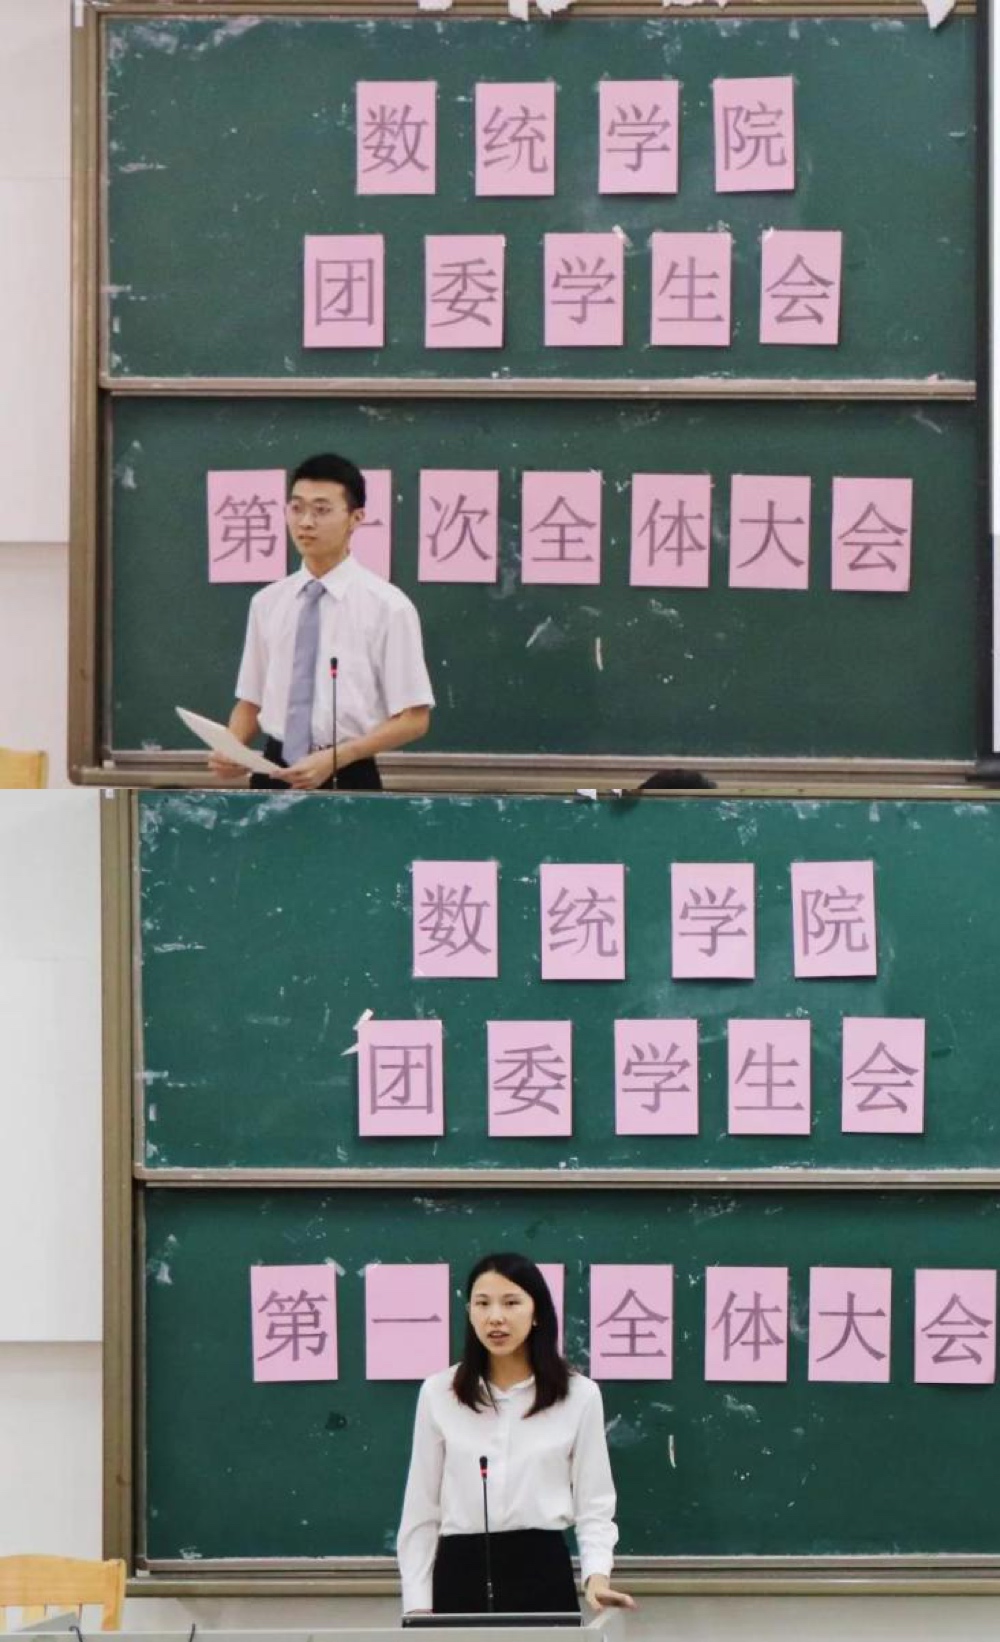 数统学院
团委学生会
第一次全体大会
数统学院
团委学生会
第一 全体大会